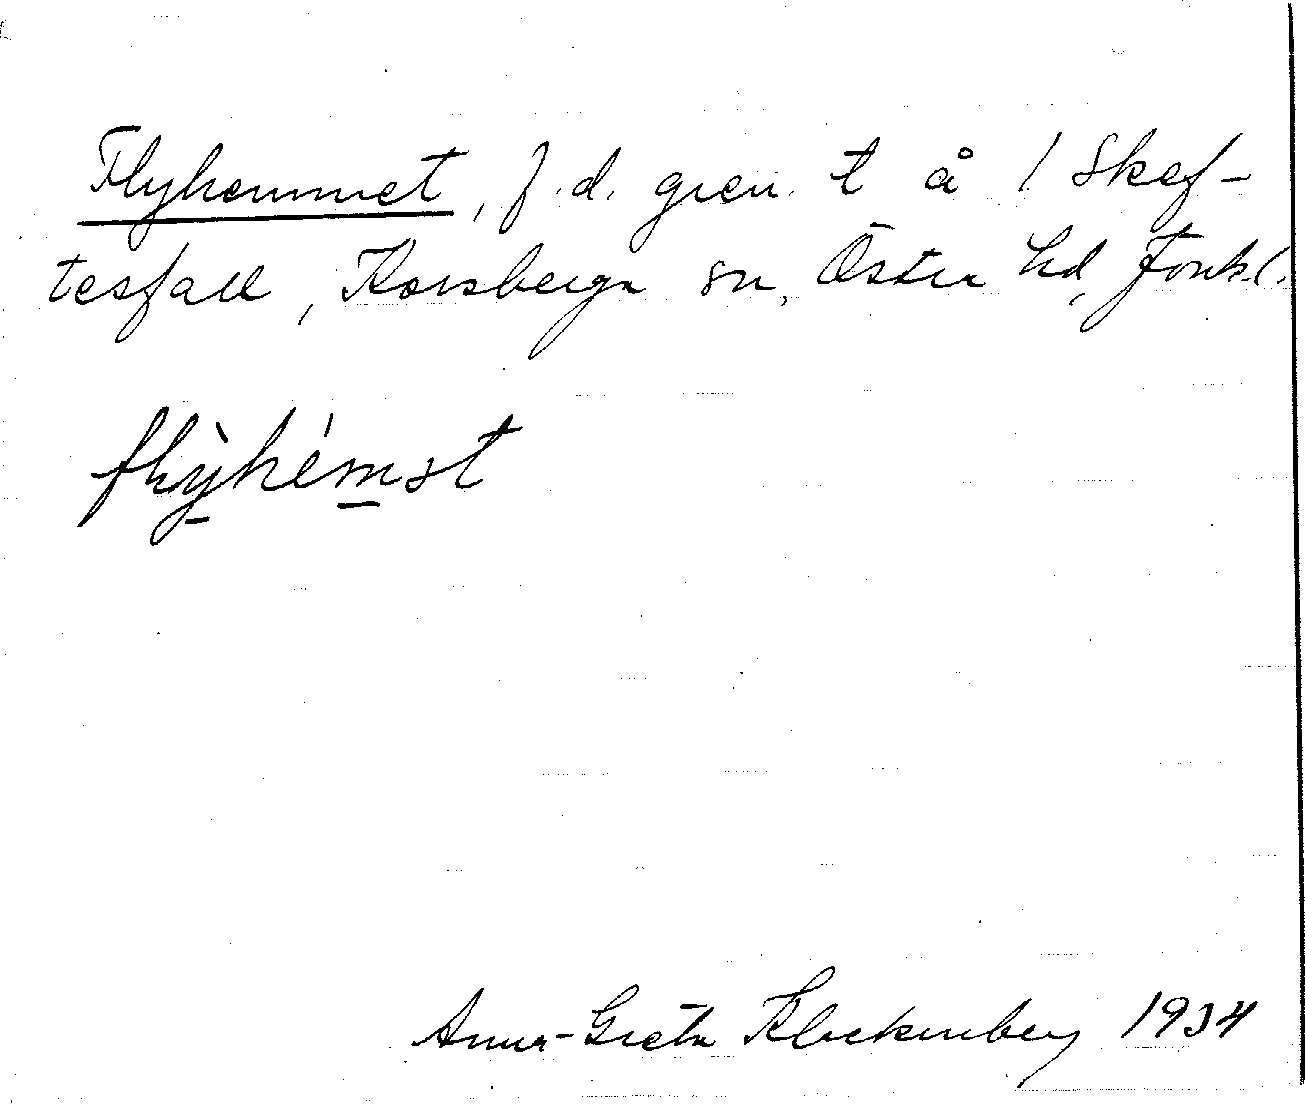 Flyhemmet, f.d. gren. t å / Skef-
tesfall, Korsberga sn, Östra hd, Jönk.l.
flỳhémət
Anna-Greta Klockenberg 1934